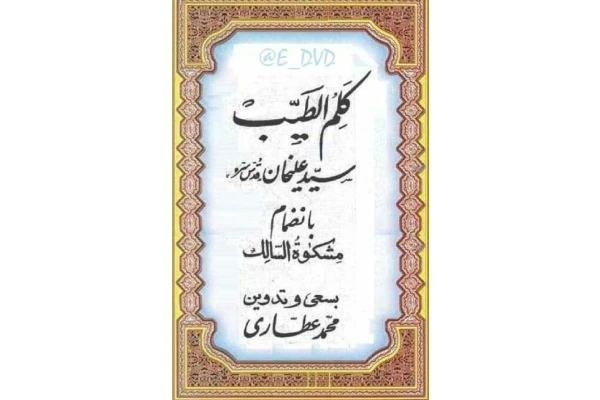 @E_DVD
کَلِمُ الطَیِّبْ
سیّد علیخان «قدّس سرّه»
بانضمام
مِشکوٰةُ السّالِک
بسعی و تدوین
محمد عطاری